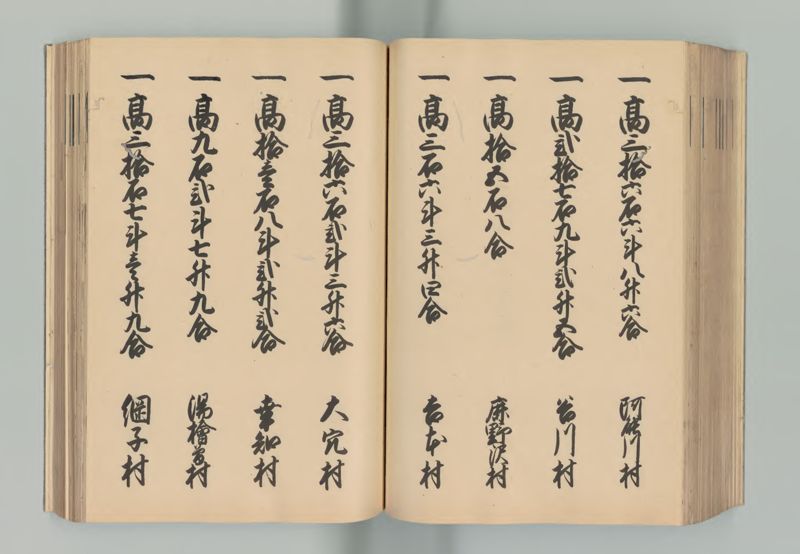 一高三拾六石六斗八升六合 阿能川村
一高弐拾七石九斗弐升五合 谷川村
一高拾五石八合 鹿野沢村
一高三石六斗三升四合 吉本村
一高三拾六石弐斗三升六合 大穴村
一高拾壱石八斗弐升弐合 幸知村
一高九石弐斗七升九合 湯檜曽村
一高三拾石七斗壱升九合 綱子村